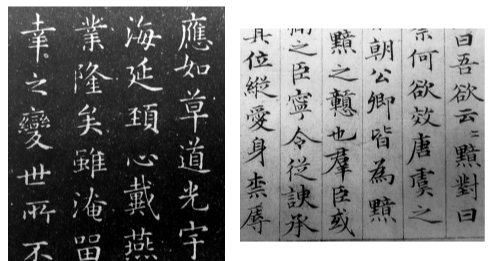 應如草道光宇
海延頸心戴燕
業隆矣雖淹畱
幸之變世所不
曰吾欲云〻黯對曰
柰何欲效唐虞之
朝公卿皆為黯
黯之戇也羣臣或
之臣寧令從諛承
其位縱愛身柰辱